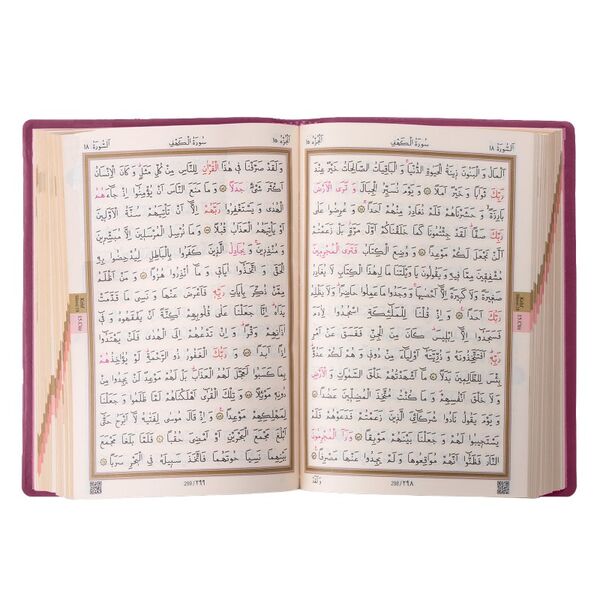 اَلسُّورَةُ ١٨
سُورَةُ الْكَهْفِ
اَلْجُزْءُ ١٥
اَلْمَالُ وَ الْبَنُونَ زِينَةُ الْحَيٰوةِ الدُّنْيَا وَ الْبَاقِيَاتُ الصَّالِحَاتُ خَيْرٌ عِنْدَ
رَبِّكَ ثَوَابًا وَ خَيْرٌ اَمَلًا ۝ وَ يَوْمَ نُسَيِّرُ الْجِبَالَ وَ تَرَى الْاَرْضَ
بَارِزَةً وَ حَشَرْنَاهُمْ فَلَمْ نُغَادِرْ مِنْهُمْ اَحَدًا ۝ وَ عُرِضُوا عَلٰى
رَبِّكَ صَفًّا لَقَدْ جِئْتُمُونَا كَمَا خَلَقْنَاكُمْ اَوَّلَ مَرَّةٍ بَلْ زَعَمْتُمْ
اَلَّنْ نَجْعَلَ لَكُمْ مَوْعِدًا ۝ وَ وُضِعَ الْكِتَابُ فَتَرَى الْمُجْرِمِينَ
مُشْفِقِينَ مِمَّا فِيهِ وَ يَقُولُونَ يَا وَيْلَتَنَا مَا لِهٰذَا الْكِتَابِ لَا يُغَادِرُ
صَغِيرَةً وَ لَا كَبِيرَةً اِلَّا اَحْصٰيهَا وَ وَجَدُوا مَا عَمِلُوا حَاضِرًا وَ لَا يَظْلِمُ
رَبُّكَ اَحَدًا ۝ وَ اِذْ قُلْنَا لِلْمَلٰئِكَةِ اسْجُدُوا لِاٰدَمَ
فَسَجَدُوا اِلَّا اِبْلِيسَ كَانَ مِنَ الْجِنِّ فَفَسَقَ عَنْ اَمْرِ
رَبِّهِ اَفَتَتَّخِذُونَهُ وَ ذُرِّيَّتَهُ اَوْلِيَاءَ مِنْ دُونِي وَ هُمْ لَكُمْ عَدُوٌّ
بِئْسَ لِلظَّالِمِينَ بَدَلًا ۝ مَا اَشْهَدْتُهُمْ خَلْقَ السَّمٰوَاتِ وَ الْاَرْضِ
وَ لَا خَلْقَ اَنْفُسِهِمْ وَ مَا كُنْتُ مُتَّخِذَ الْمُضِلِّينَ عَضُدًا ۝
وَ يَوْمَ يَقُولُ نَادُوا شُرَكَائِيَ الَّذِينَ زَعَمْتُمْ فَدَعَوْهُمْ فَلَمْ
يَسْتَجِيبُوا لَهُمْ وَ جَعَلْنَا بَيْنَهُمْ مَوْبِقًا ۝ وَ رَاَ الْمُجْرِمُونَ
النَّارَ فَظَنُّوا اَنَّهُمْ مُوَاقِعُوهَا وَ لَمْ يَجِدُوا عَنْهَا مَصْرِفًا ۝
وَ لَقَدْ
298/٢٩٨
Kehf
15.Cüz
اَلْجُزْءُ ١٥
سُورَةُ الْكَهْفِ
اَلسُّورَةُ ١٨
وَ لَقَدْ صَرَّفْنَا فِي هٰذَا الْقُرْاٰنِ لِلنَّاسِ مِنْ كُلِّ مَثَلٍ وَ كَانَ الْاِنْسَانُ
اَكْثَرَ شَيْءٍ جَدَلًا ۝ وَ مَا مَنَعَ النَّاسَ اَنْ يُؤْمِنُوا اِذْ جَاءَهُمُ
الْهُدٰى وَ يَسْتَغْفِرُوا رَبَّهُمْ اِلَّا اَنْ تَأْتِيَهُمْ سُنَّةُ الْاَوَّلِينَ
اَوْ يَأْتِيَهُمُ الْعَذَابُ قُبُلًا ۝ وَ مَا نُرْسِلُ الْمُرْسَلِينَ اِلَّا مُبَشِّرِينَ
وَ مُنْذِرِينَ وَ يُجَادِلُ الَّذِينَ كَفَرُوا بِالْبَاطِلِ لِيُدْحِضُوا بِهِ
الْحَقَّ وَ اتَّخَذُوا اٰيَاتِي وَ مَا اُنْذِرُوا هُزُوًا ۝ وَ مَنْ اَظْلَمُ
مِمَّنْ ذُكِّرَ بِاٰيَاتِ رَبِّهِ فَاَعْرَضَ عَنْهَا وَ نَسِيَ مَا قَدَّمَتْ
يَدَاهُ اِنَّا جَعَلْنَا عَلٰى قُلُوبِهِمْ اَكِنَّةً اَنْ يَفْقَهُوهُ وَ فِي
اٰذَانِهِمْ وَقْرًا وَ اِنْ تَدْعُهُمْ اِلَى الْهُدٰى فَلَنْ يَهْتَدُوا
اِذًا اَبَدًا ۝ وَ رَبُّكَ الْغَفُورُ ذُو الرَّحْمَةِ لَوْ يُؤَاخِذُهُمْ
بِمَا كَسَبُوا لَعَجَّلَ لَهُمُ الْعَذَابَ بَلْ لَهُمْ مَوْعِدٌ لَنْ يَجِدُوا مِنْ
دُونِهِ مَوْئِلًا ۝ وَ تِلْكَ الْقُرٰى اَهْلَكْنَاهُمْ لَمَّا ظَلَمُوا وَ جَعَلْنَا
لِمَهْلِكِهِمْ مَوْعِدًا ۝ وَ اِذْ قَالَ مُوسٰى لِفَتٰيهُ لَا اَبْرَحُ حَتّٰى
اَبْلُغَ مَجْمَعَ الْبَحْرَيْنِ اَوْ اَمْضِيَ حُقُبًا ۝ فَلَمَّا بَلَغَا مَجْمَعَ
بَيْنِهِمَا نَسِيَا حُوتَهُمَا فَاتَّخَذَ سَبِيلَهُ فِي الْبَحْرِ سَرَبًا ۝
299/٢٩٩
Kehf
15.Cüz